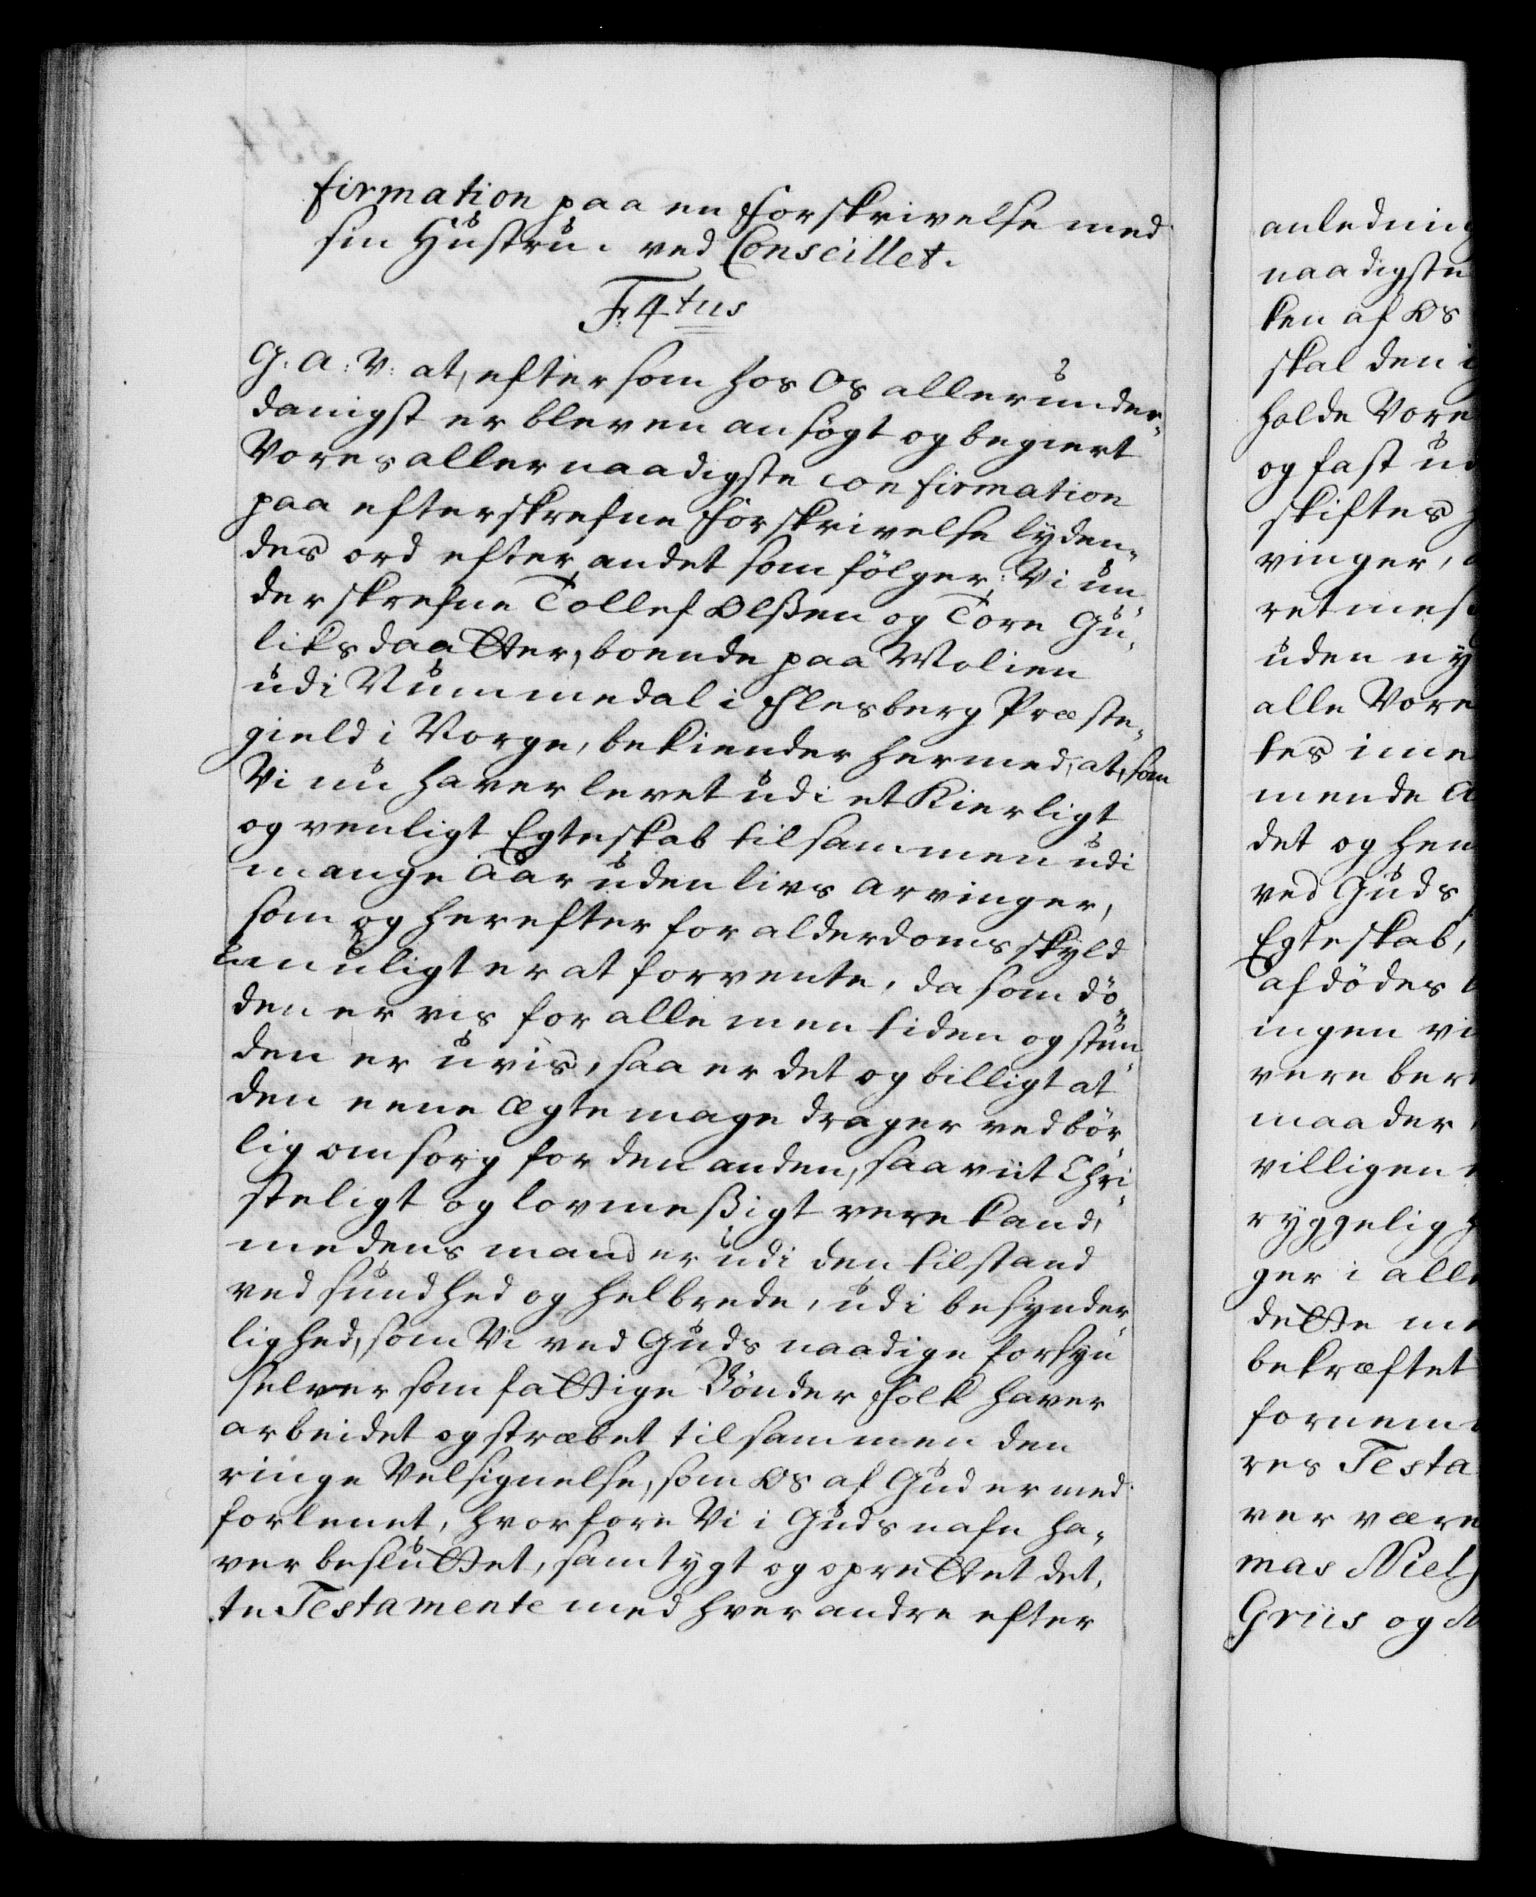 firmation paa en Forskrivelse med
sin Hustru. ved Conseillet.
F: 4tus
G: A: V: at, eftersom hos Os allerunder-
danigst er bleven ansøgt og begiert
Vores allernaadigste confirmation
paa efterskrefne Forskrivelse lyden-
des ord efter andet som følger: Vi un-
derskrefne Tollef Olßen og Tore Gu-
liksdaatter, boende paa Wolien
udi Nummedal i Flesberg Præste-
gield i Norge, bekiender hermed, at, som
Vi nu haver levet udi et Kierligt
og venligt Egteskab tilsammen udi
mange Aar uden livs arvinger,
som og herefter for alderdoms skyld
umuligt er at forvente, da som dø-
den er vis for alle men tiden og stun-
den er uvis, saa er det og billigt at
den eene ægtemage drager vedbør-
lig omsorg for den anden, saa viit Chri-
steligt og lovmeßigt vere kand,
medens mand er udi den tilstand
ved sundhed og helbrede, udi besynder-
lighed, som Vi ved Guds naadige forsyn
selver som fattige Bønder Folk haver
arbeidet og stræbet tilsammen den
ringe Velsignelse, som Os af Gud er med
forlenet, hvorfore Vi i Guds nafn ha-
ver besluttet, samtygt og oprettet det-
te Testamente med hver andre efter
anledning
naadigste
ken af Os
skal den i
holde Vore
og fast ud
skiftes
vinger,
retmes
uden ny
alle Vore
tes ime
mende A
det og hen
ved Guds
Egteskab,
afdødes
ingen vi
vere ber
maader
villigen
ryggelig
ger i alle
dette me
bekræftet
fornem
res Testa
ver være
mas Niels
Griis og